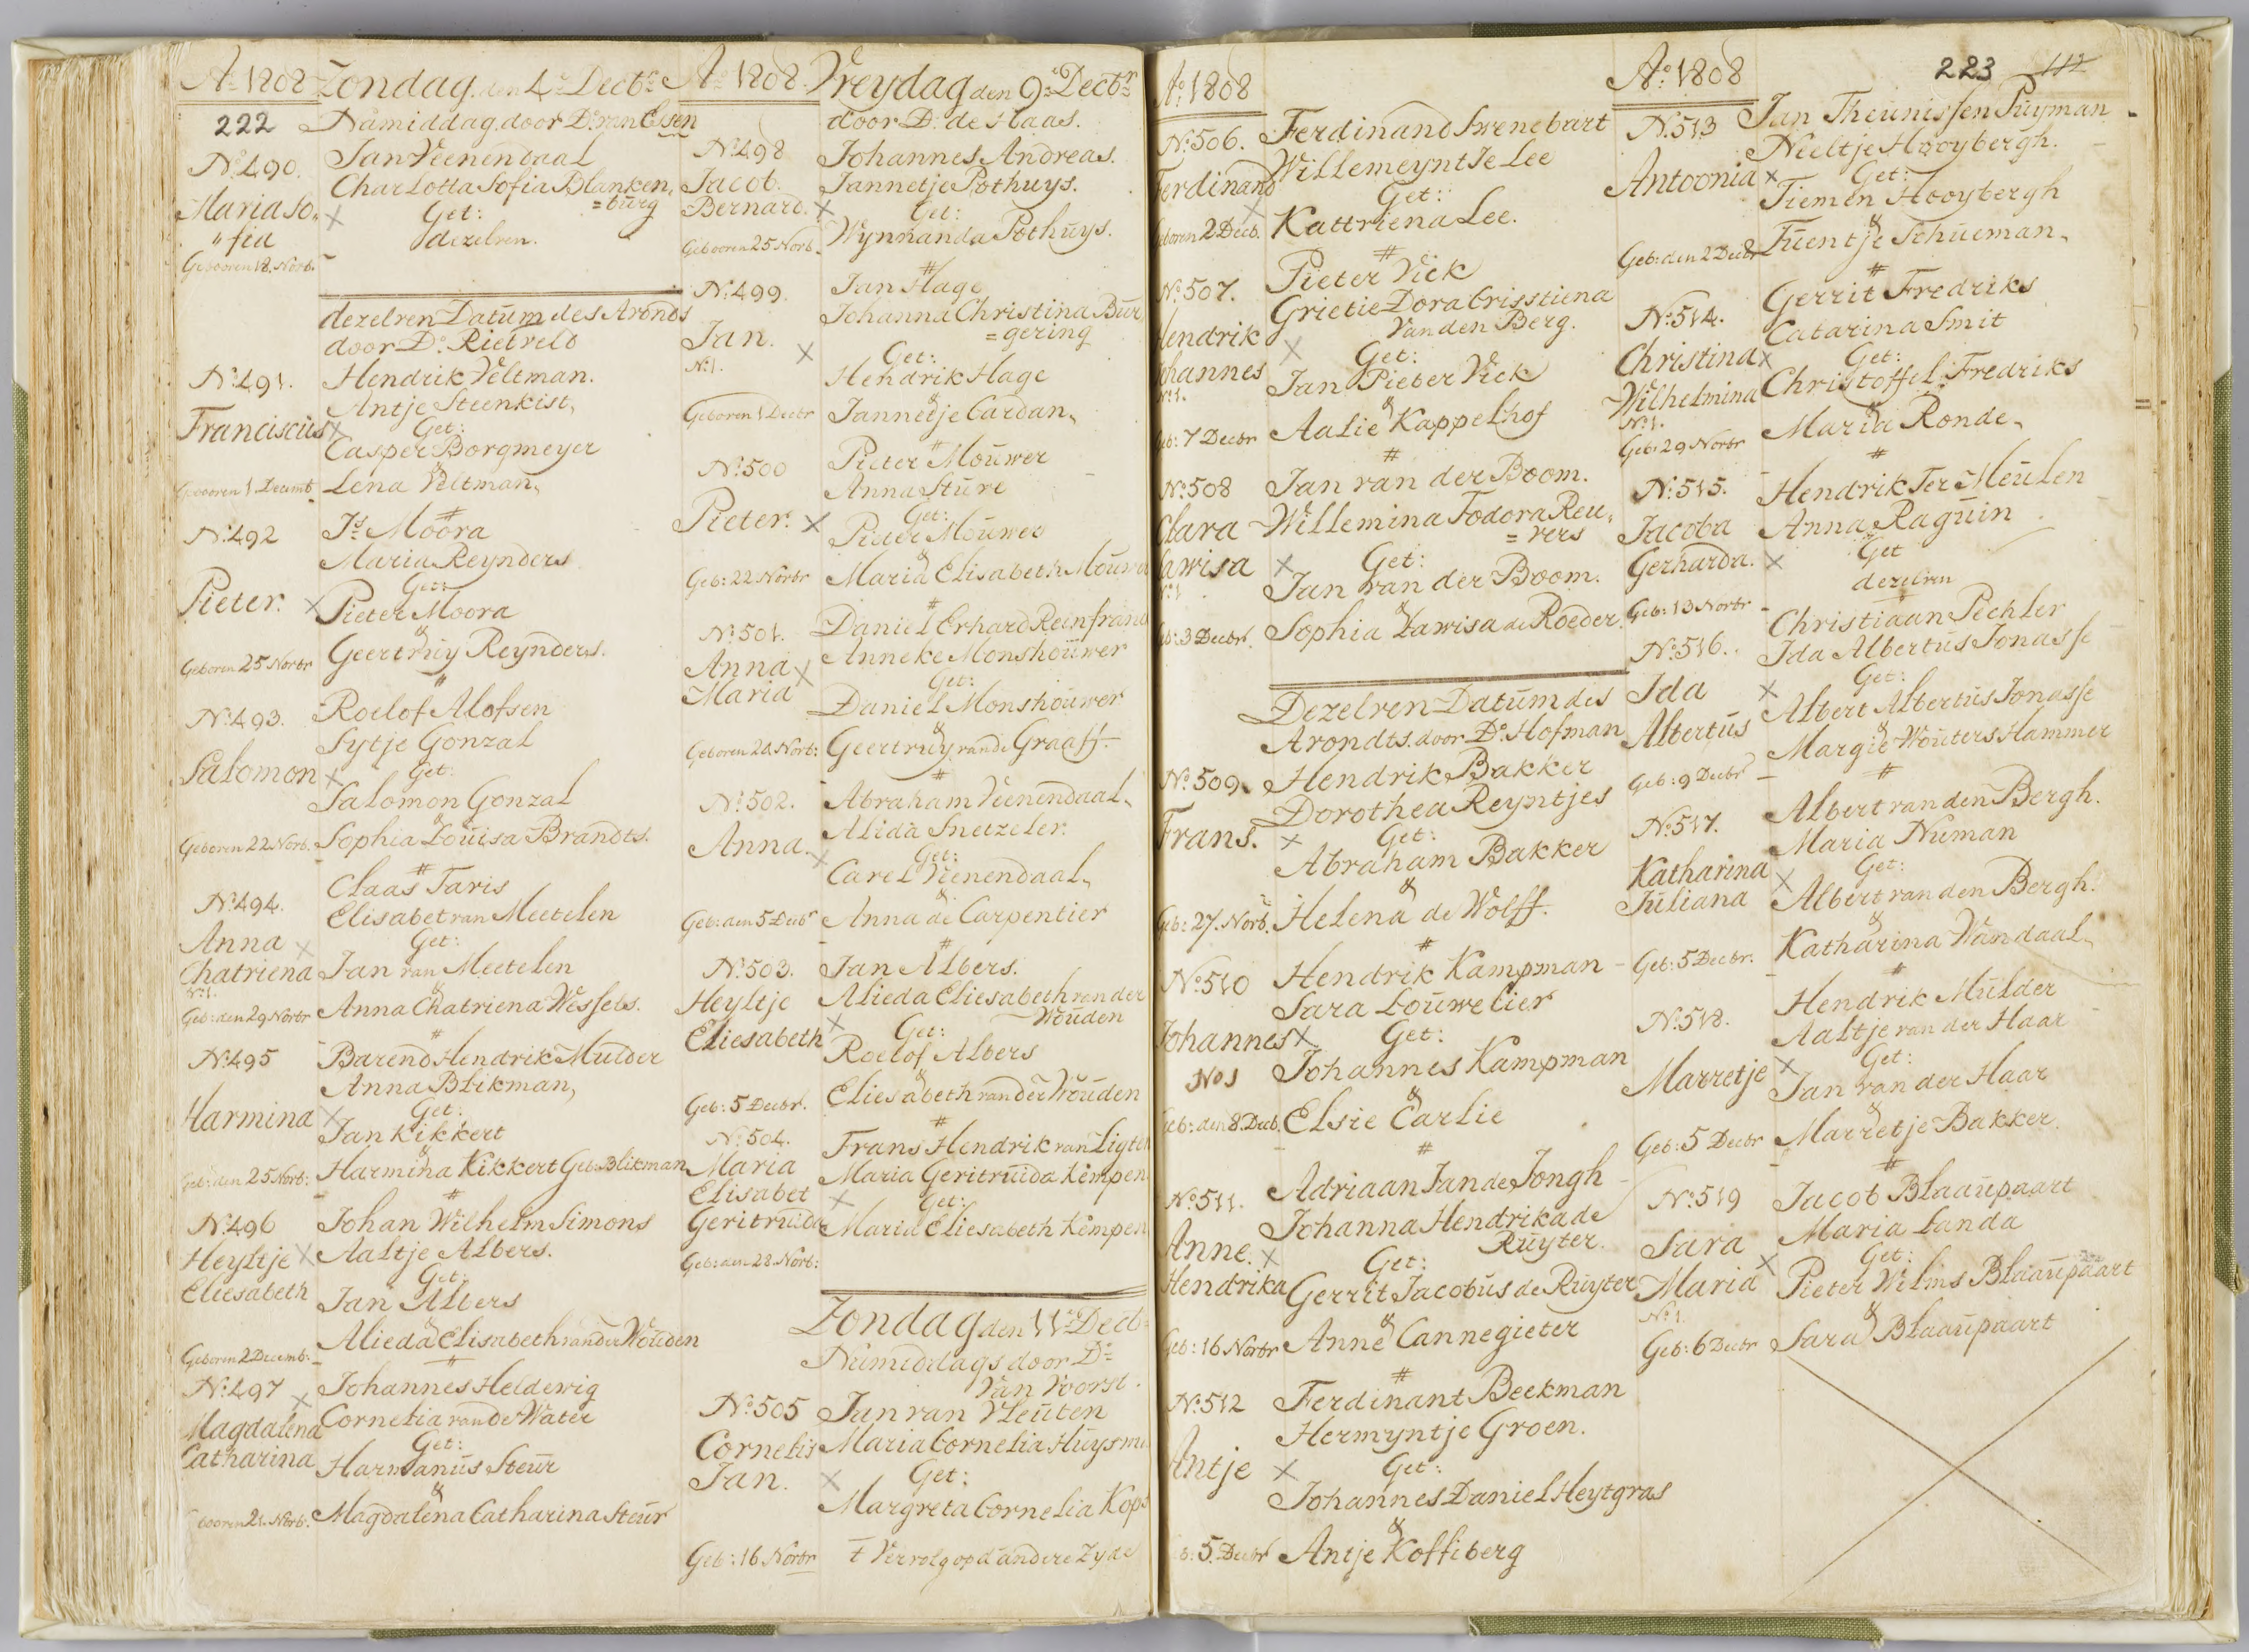 Ao 1808 Zondag den 4e Decbr
222 Namiddag door Ds van Essen
No 490. Jan Veenendaal
Charlotta Sofia Blanken,
=burg
Maria So,,
"fia
Get:
dezelven.
Geboren 18. Novb.
dezelven Datum des Avonds
door Ds Rietveld
No 491. Hendrik Veltman.
Antje Steenkist,
Franciscus Get:
Casper Borgmeyer
&
Geboren 1 Decemb Lena Veltman,
No 492 Js Moora
Maria Reynders
Get:
Pieter. Pieter Moora
&
Geboren 25 Novbr Geertruy Reynders.
No 493. Roelof Alofsen
Sytje Gonzal
Salomon Get:
Salomon Gonzal
&
Geboren 22 Novb. Sophia Louisa Brandts.
No 494. Claas Taris
Elisabet van Meetelen
Anna Get:
Chatriena Jan van Meetelen
No 1. &
Geb: den 29 Novbr Anna Chatriena Wessels.
No 495 Barend Hendrik Mulder
Anna Blikman,
Harmina Get:
Jan Kikkert
&
Geb: den 25 Novb: Harmina Kikkert Geb. Blikman
No 496 Johan Wilhelm Simons
Heyltje Aaltje Albers.
Eliesabeth Get:
Jan Albers
&
Geboren 2 Decemb: Alieda Elisabeth van der Wouden
No 497 Johannes Heldewig
Magdalena Cornelia van de Water
Catharina Get:
Harmanus Steur
&
Geboren 21. Novb. Magdalena Catharina Steur
Ao 1808. Vreydag den 9e Decbr
door Ds de Haas.
No 498 Johannes Andreas.
Jacob. Jannetje Pothuys.
Bernard. Get:
Geboren 25 Novb. Wynnanda Pothuys.
No 499. Jan Hage
Johanna Christiina Bur,
=gering
Jan. Get:
No 1. Hendrik Hage
&
Geboren 1 Decbr Jannetje Cardan,
No 500 Pieter Mouwer
Anna Sture
Pieter. Get:
Pieter Mouwer
&
Geb: 22 Novbr Maria Elisabeth Mouwer
No 501. Daniel Erhard Reinfrand
Anna Anneke Monshouwer
Maria Get:
Daniel Monshouwer
&
Geboren 20. Novb: Geertruy van de Graaff.
No 502. Abraham Veenendaal,
Alida Snetzeler.
Anna. Get:
Carel Veenendaal,
&
Geb: den 5 Decbr Anna de Carpentier
No 503. Jan Albers.
Heyltje Alieda Eliesabeth van der
Wouden
Eliesabeth Get:
Roelof Albers
&
Geb: 5 Decbr. Eliesabeth van der Wouden
No 504. Frans Hendrik van Ligten
Maria Maria Geritruida Kempen
Elisabet Get:
Geritruida Maria Eliesabeth Kempen
Geb: den 28. Novb:
Zondag den 11e Decb
Namiddags door Ds
Van Voorst.
No 505 Jan van Vleuten
Cornelis Maria Cornelia Huysma
Jan. Get:
Margreta Cornelia Kops
Geb: 16 Novbr t Vervolg op d'andere Zyde
Ao 1808
No 506. Ferdinand Swenebart
Willemeyntje Lee
Ferdinand Get:
Geboren 2 Decb. Kattriena Lee.
No 507. Pieter Vick
Grietie Dora Crisstiena
Van den Berg.
Hendrik Get:
Johannes Jan Pieter Vick
No 1. &
Geb: 7 Decbr Aalie Kappelhof
No 508 Jan van der Boom.
Clara Willemina Fodora Reu,
=vers
Lawisa Get:
No 1 Jan van der Boom.
&
Geb: 3 Decbr. Sophia Lawisa de Roeder.
Dezelven Datum des
Avondts. door Ds Hofman
No 509. Hendrik Bakker
Dorothea Reyntjes
Frans. Get:
Abraham Bakker
&
Geb: 27. Novb. Helena de Wolff.
No 510 Hendrik Kampman
Sara Louwelier
Johannes Get:
No 1 Johannes Kampman
&
Geb: den 8. Decb. Elsie Carlie
No 511. Adriaan Jan de Jongh
Johanna Hendrika de
Ruyter.
Anne. Get:
Hendrika Gerrit Jacobus de Ruyter
&
Geb: 16 Novbr Anne Cannegieter
No 512 Ferdinant Beekman
Hermyntje Groen.
Antje Get:
Johannes Daniel Heytgras
&
Geb: 5. Decbr Antje Koffiberg
Ao 1808 223 112
No 513 Jan Theunissen Puyman
Neeltje Hooybergh.
Antoonia Get:
Tiemen Hooybergh
&
Geb: den 2 Decbr Fuentje Schueman,
No 514. Gerrit Fredriks
Catarina Smit
Christina Get:
Wilhelmina Christoffel Fredriks
No 1. &
Geb: 29 Novbr Maria Ronde,
No 515. Hendrik Ter Meulen
Jacoba Anna Raguin
Gerharda. Get
dezelven
Geb: 13 Novbr
No 516. Christiaan Pechler
Ida Albertus Jonasse
Ida Get:
Albertus Albert Albertus Jonasse
&
Geb: 9 Decbr Margie Wouters Hammer
No 517. Albert van den Bergh.
Maria Numan
Katharina Get:
Juliana Albert van den Bergh.
&
Geb: 5 Decbr. Katharina Wandaal,
No 518. Hendrik Mulder
Aaltje van der Haar
Marretje Get:
Jan van der Haar
&
Geb: 5 Decbr Marretje Bakker.
No 519 Jacob Blaaupaart
Maria Landa
Sara Get:
Maria Pieter Wilms Blaaupaart
No 1. &
Geb: 6 Decbr Sara Blaaupaart